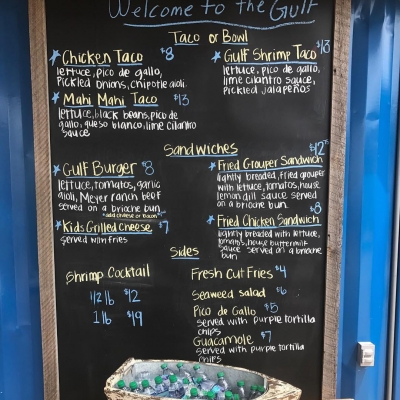 Welcome to the Gulf
Taco or Bowl
Chicken Taco $8
lettuce, pico de gallo,
Pickled onions, Chipotle aioli
Mahi Mahi Taco $13
lettuce, black beans, pico de
gallo, queso blanco, lime cilantro
sauce
Gulf Shrimp Taco $13
lettuce, pico de gallo,
lime cilantro sauce,
Pickled jalapeños
Sandwiches
Gulf Burger $8
lettuce, tomatoes, garlic
aioli, Meyer ranch beef
served on a brioche bun
*add cheese or bacon
Kids Grilled Cheese $7
served with fries
$12
Fried Grouper Sandwich
lightly breaded, fried grouper
with lettuce, tomatos, house
lemon dill sauce served
on a brioche bun
$8
Fried Chicken Sandwich
lightly breaded with lettuce,
tomato, house buttermilk
sauce served on a brioche
bun
Sides
Shrimp Cocktail
1/2 lb $12
1 lb $19
Fresh Cut Fries $4
Seaweed salad $6
Pico de Gallo $5
served with purple tortilla
chips
Guacamole $7
served with purple tortilla
chips